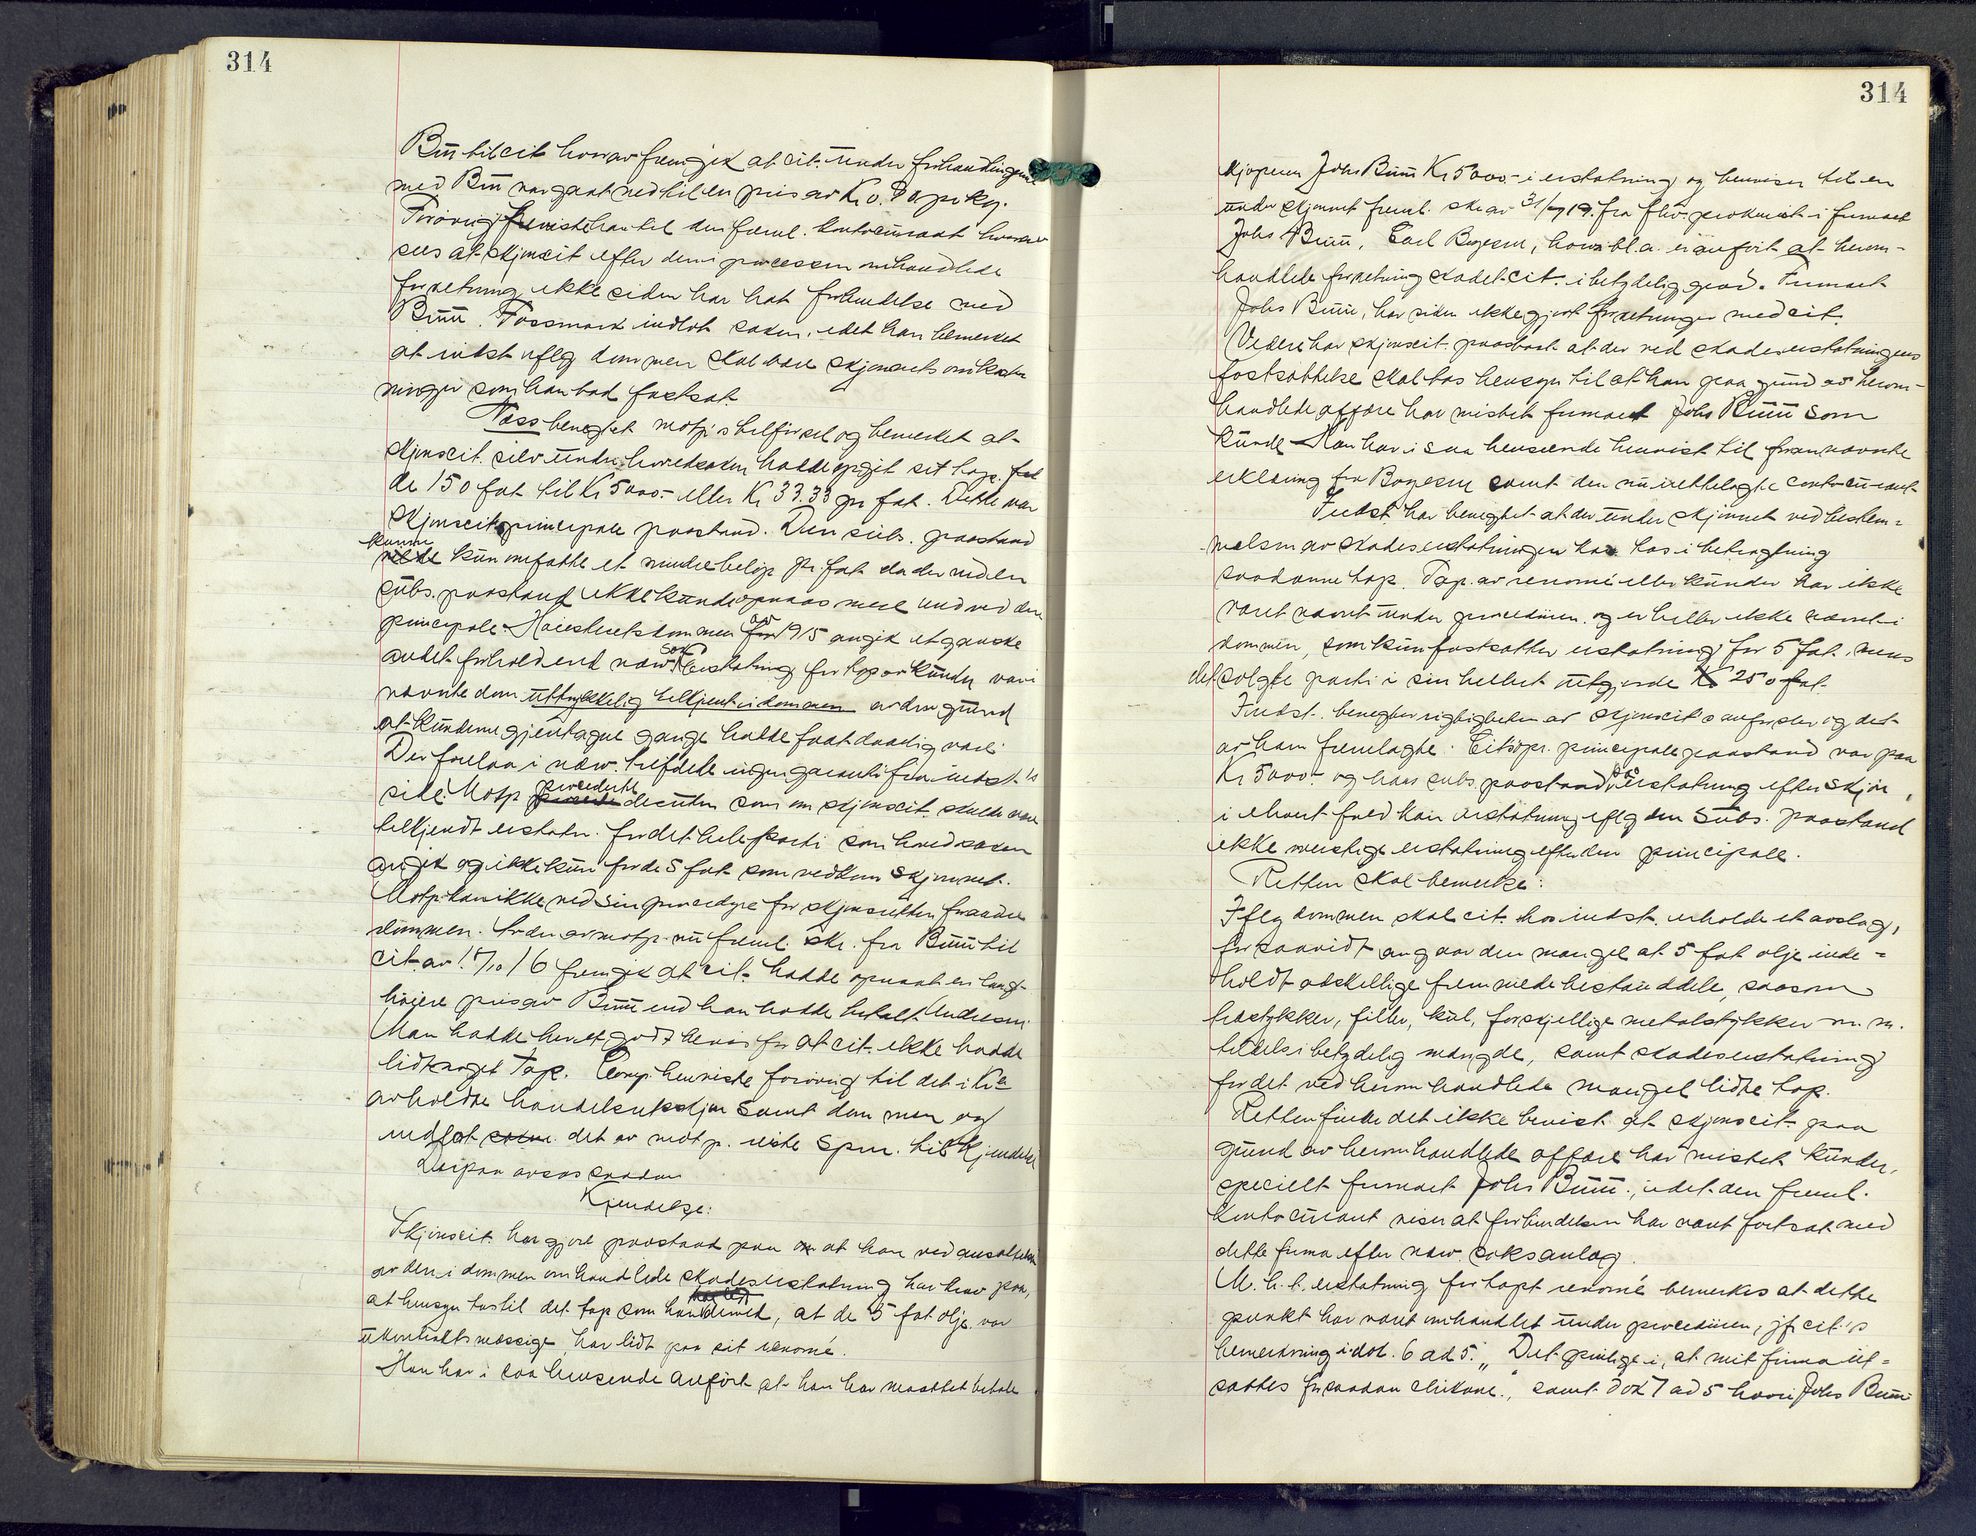 314
Buu til cit. hvorav fremgik at cit. under forhandlingerne
med Buu var gaat ned til en pris av Kr. 0.80 pr kg.
Forøvrig henviste han til den freml. kontocurant hvorav
sees at skjønscit efter den i processen omhandlede
forretning ikke siden har hat forbindelse med
Buu. Fossmark indlot saken, idet han bemerket
at indst. iflg dommen skal bære skjønnets omkost-
ninger som han bad fastsat.
Nass benegtet motp's tilførsel og bemerket at
skjønscit. selv under hovedsaken hadde opgit sit tap for
de 150 fat til Kr 5000.- eller Kr 33.33 pr fat. Dette var
skjønscits principale paastand. Den subs. paastand
kunne kun omfatte et mindre beløp pr. fat da der ved en
subs. paastand ikke kunde opnaaes mere end ved den
principale. Høiesteretsdommen av 1915 angik et ganske
andet forhold end nærv. sak. Erstatning for tap av kunder var i
nævnte dom uttrykkelig tilkjent i dommen av den grund
at kunderne gjentagne gange hadde faat daarlig vare.
Der forelaa i nærv. tilfælde ingen garanti fra indst.'s
side. Motp procederte desuten som om skjønscit. skulde være
tilkjendt erstatn. for det hele parti som hovedsaken
angik og ikke kun for de 5 fat som vedkom skjønnet.
Motp. kan ikke ved sin procedyre for skjønsretten forandre
dommen. Av den av motp. nu freml. skr. fra Buu til
cit. av 17/10 16 fremgik at cit. hadde opnaat en langt
høiere pris av Buu end han hadde betalt Andresen.
Man hadde herved godt bevis for at cit. ikke hadde
lidt noget tap. Comp. henviste forøvrig til det i Kra
avholdte handelsretsskjøn samt dommen og
indlot det av motp. reiste spm. til kjendelse.
Derpaa avsaes saadan
Kjendelse:
Skjønscit. har gjort paastand paa at han ved ansættelsen
av den i dommen omhandlede skadeserstatning har krav paa,
at hensyn tas til det tap som han derved, at de 5 fat olje var
ukontraktsmæssige, har lidt paa sit renomé.
Han har i saa henseende anført at han har maattet betale
314
kjøperen Johs Buu Kr 5000.- i erstatning og henviser til en
under skjønnet freml. skr. av 31/7 19. fra fhv. prokurist i firmaet
Johs Buu, Carl Bøgesen, hvori bl.a. er anført at herom-
handlede forretning skadet cit. i betydelig grad. Firmaet
Johs Buu, har siden ikke gjort forretninger med cit.
Videre har skjønscit. paastaat at der ved skadeserstatningens
fastsættelse skal tas hensyn til at han paa grund av herom-
handlede affære har mistet firmaet Johs Buu som
kunde. Han har i saa henseende henvist til forannævnte
erklæring fra Bøgesen samt den nu irettelagte contocurant.
Indst. har benegtet at der under skjønnet ved bestem-
melsen av skadeserstatningen kan tas i betragtning
saadanne tap. Tap av renomé eller kunder har ikke
været nævnt under proceduren og er heller ikke nævnt i
dommen, som kun fastsætter erstatning for 5 fat, mens
det solgte parti i sin helhet utgjorde 250 fat.
Indst. benegter rigtigheten av skjønscit's anførsler og det
av ham fremlagte. Cits opr. principale paastand var paa
Kr 5000.- og hans subs. paastand paa erstatning efter skjøn,
i ethvert fald kan erstatning iflg den subs. paastand
ikke overstige erstatning efter den principale.
Retten skal bemerke:
Iflg dommen skal cit. hos indst. erholde et avslag,
forsaavidt angaar den mangel at 5 fat olje inde-
holdt adskillige fremmede bestanddele, saasom
træstykker, filler, kul, forskjellige metalstykker m.m.
tildels i betydelig mængde, samt skadeserstatning
for det ved heromhandlede mangel lidte tap.
Retten finder det ikke bevist at skjønscit. paa
grund av heromhandlede affære har mistet kunder,
specielt firmaet Johs Buu., idet den freml.
kontocurant viser at forbindelsen har været fortsat med
dette firma efter nærv. saksanlæg.
M.h.t. erstatning for tapt renomé bemerkes at dette
punkt har været omhandlet under proceduren, jfr cit's
bemerkning i dok. 6 ad 5. "Det pinlige i, at mit firma ut-
sættes for saadan chikane.", samt dok 7 ad 5 hvori Johs Buu